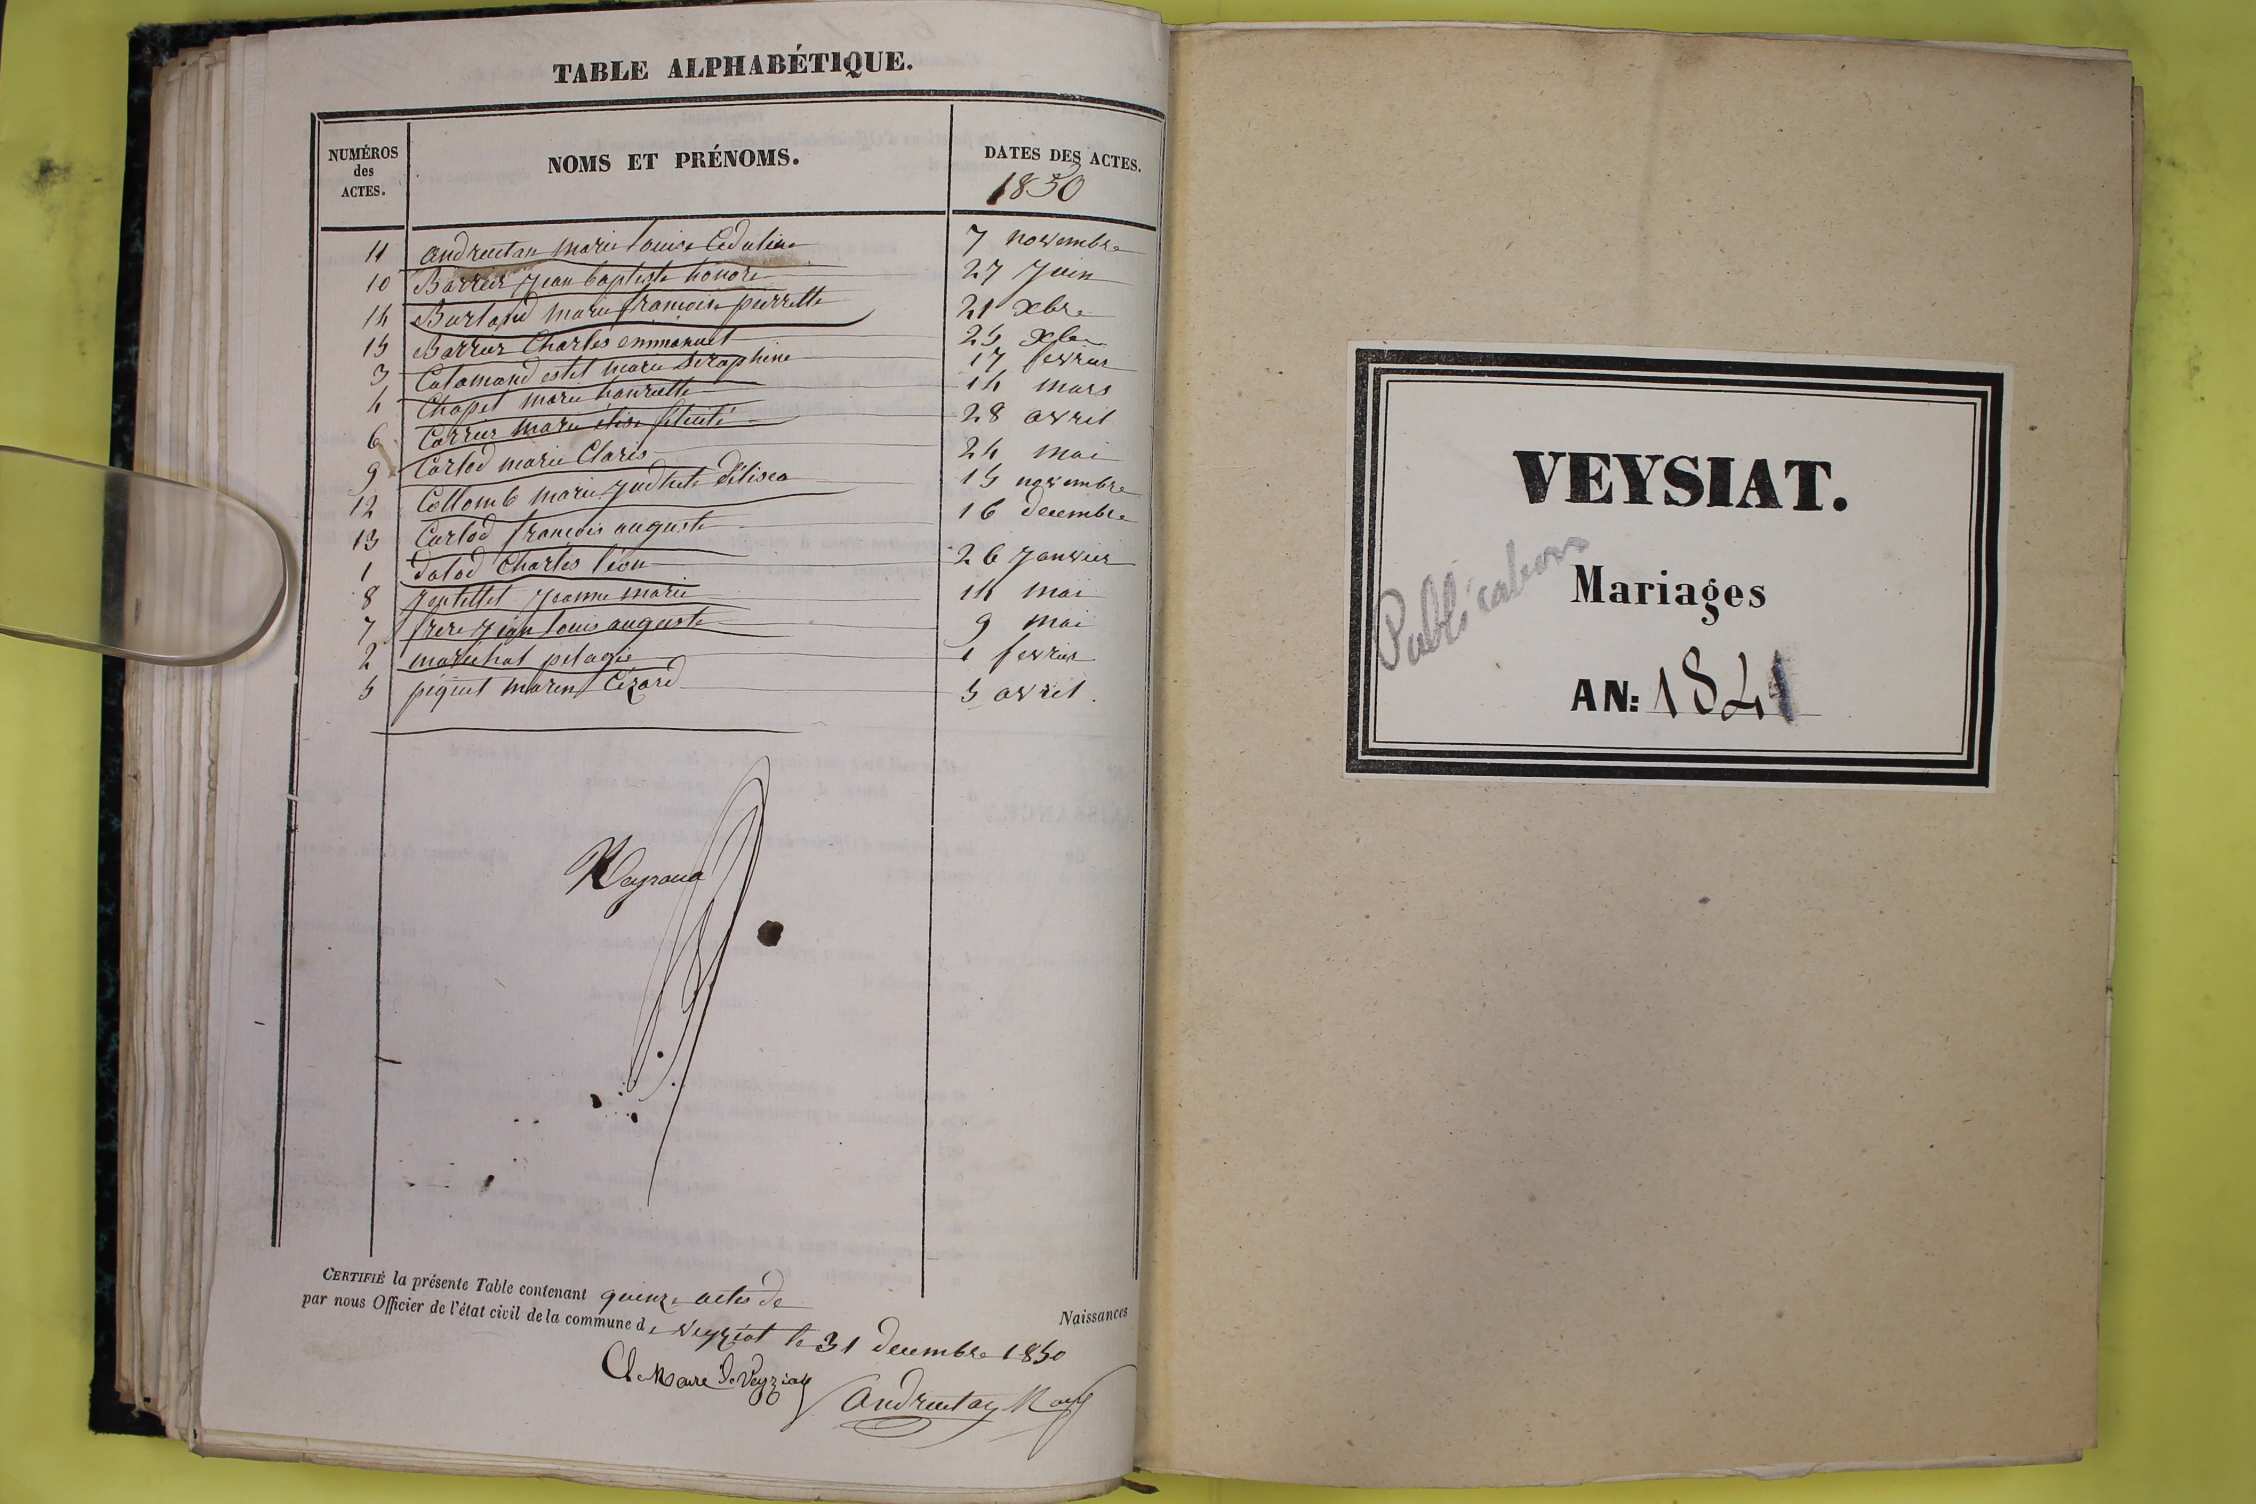 TABLE ALPHABÉTIQUE.
NUMÉROS
des
ACTES.
NOMS ET PRÉNOMS.
DATES DES ACTES.
1850
11 andreutan marie louise 7 novembre
10 Barreir Jean baptiste honore 27 Juin
14 Burlatd marie francoise pierrette 21 xbre
15 Barrur Charles emmanuel 25 xbre
3 Calamand estel marie Seraphine 17 fevrier
4 Chapel marie henriette 14 mars
6 Carrier marie élise felicité 28 avril
9 Carlod marie Claris 24 mai
12 Collomb marie 15 novembre
13 Carlod francois auguste 16 decembre
1 dalod Charles léon 26 Janvier
8 Jeantellet Jeanne marie 14 mai
7 frere Jean louis auguste 9 mai
2 marechal pelagie 1 fevrier
5 piquet marin Cezard 5 avril.
CERTIFIÉ la présente Table contenant quinze actes de
Naissances
par nous Officier de l'état civil de la commune de veyziat le 31 decembre 1850
Le Maire de Veyziat
VEYSIAT.
Publications
Mariages
AN: 1841